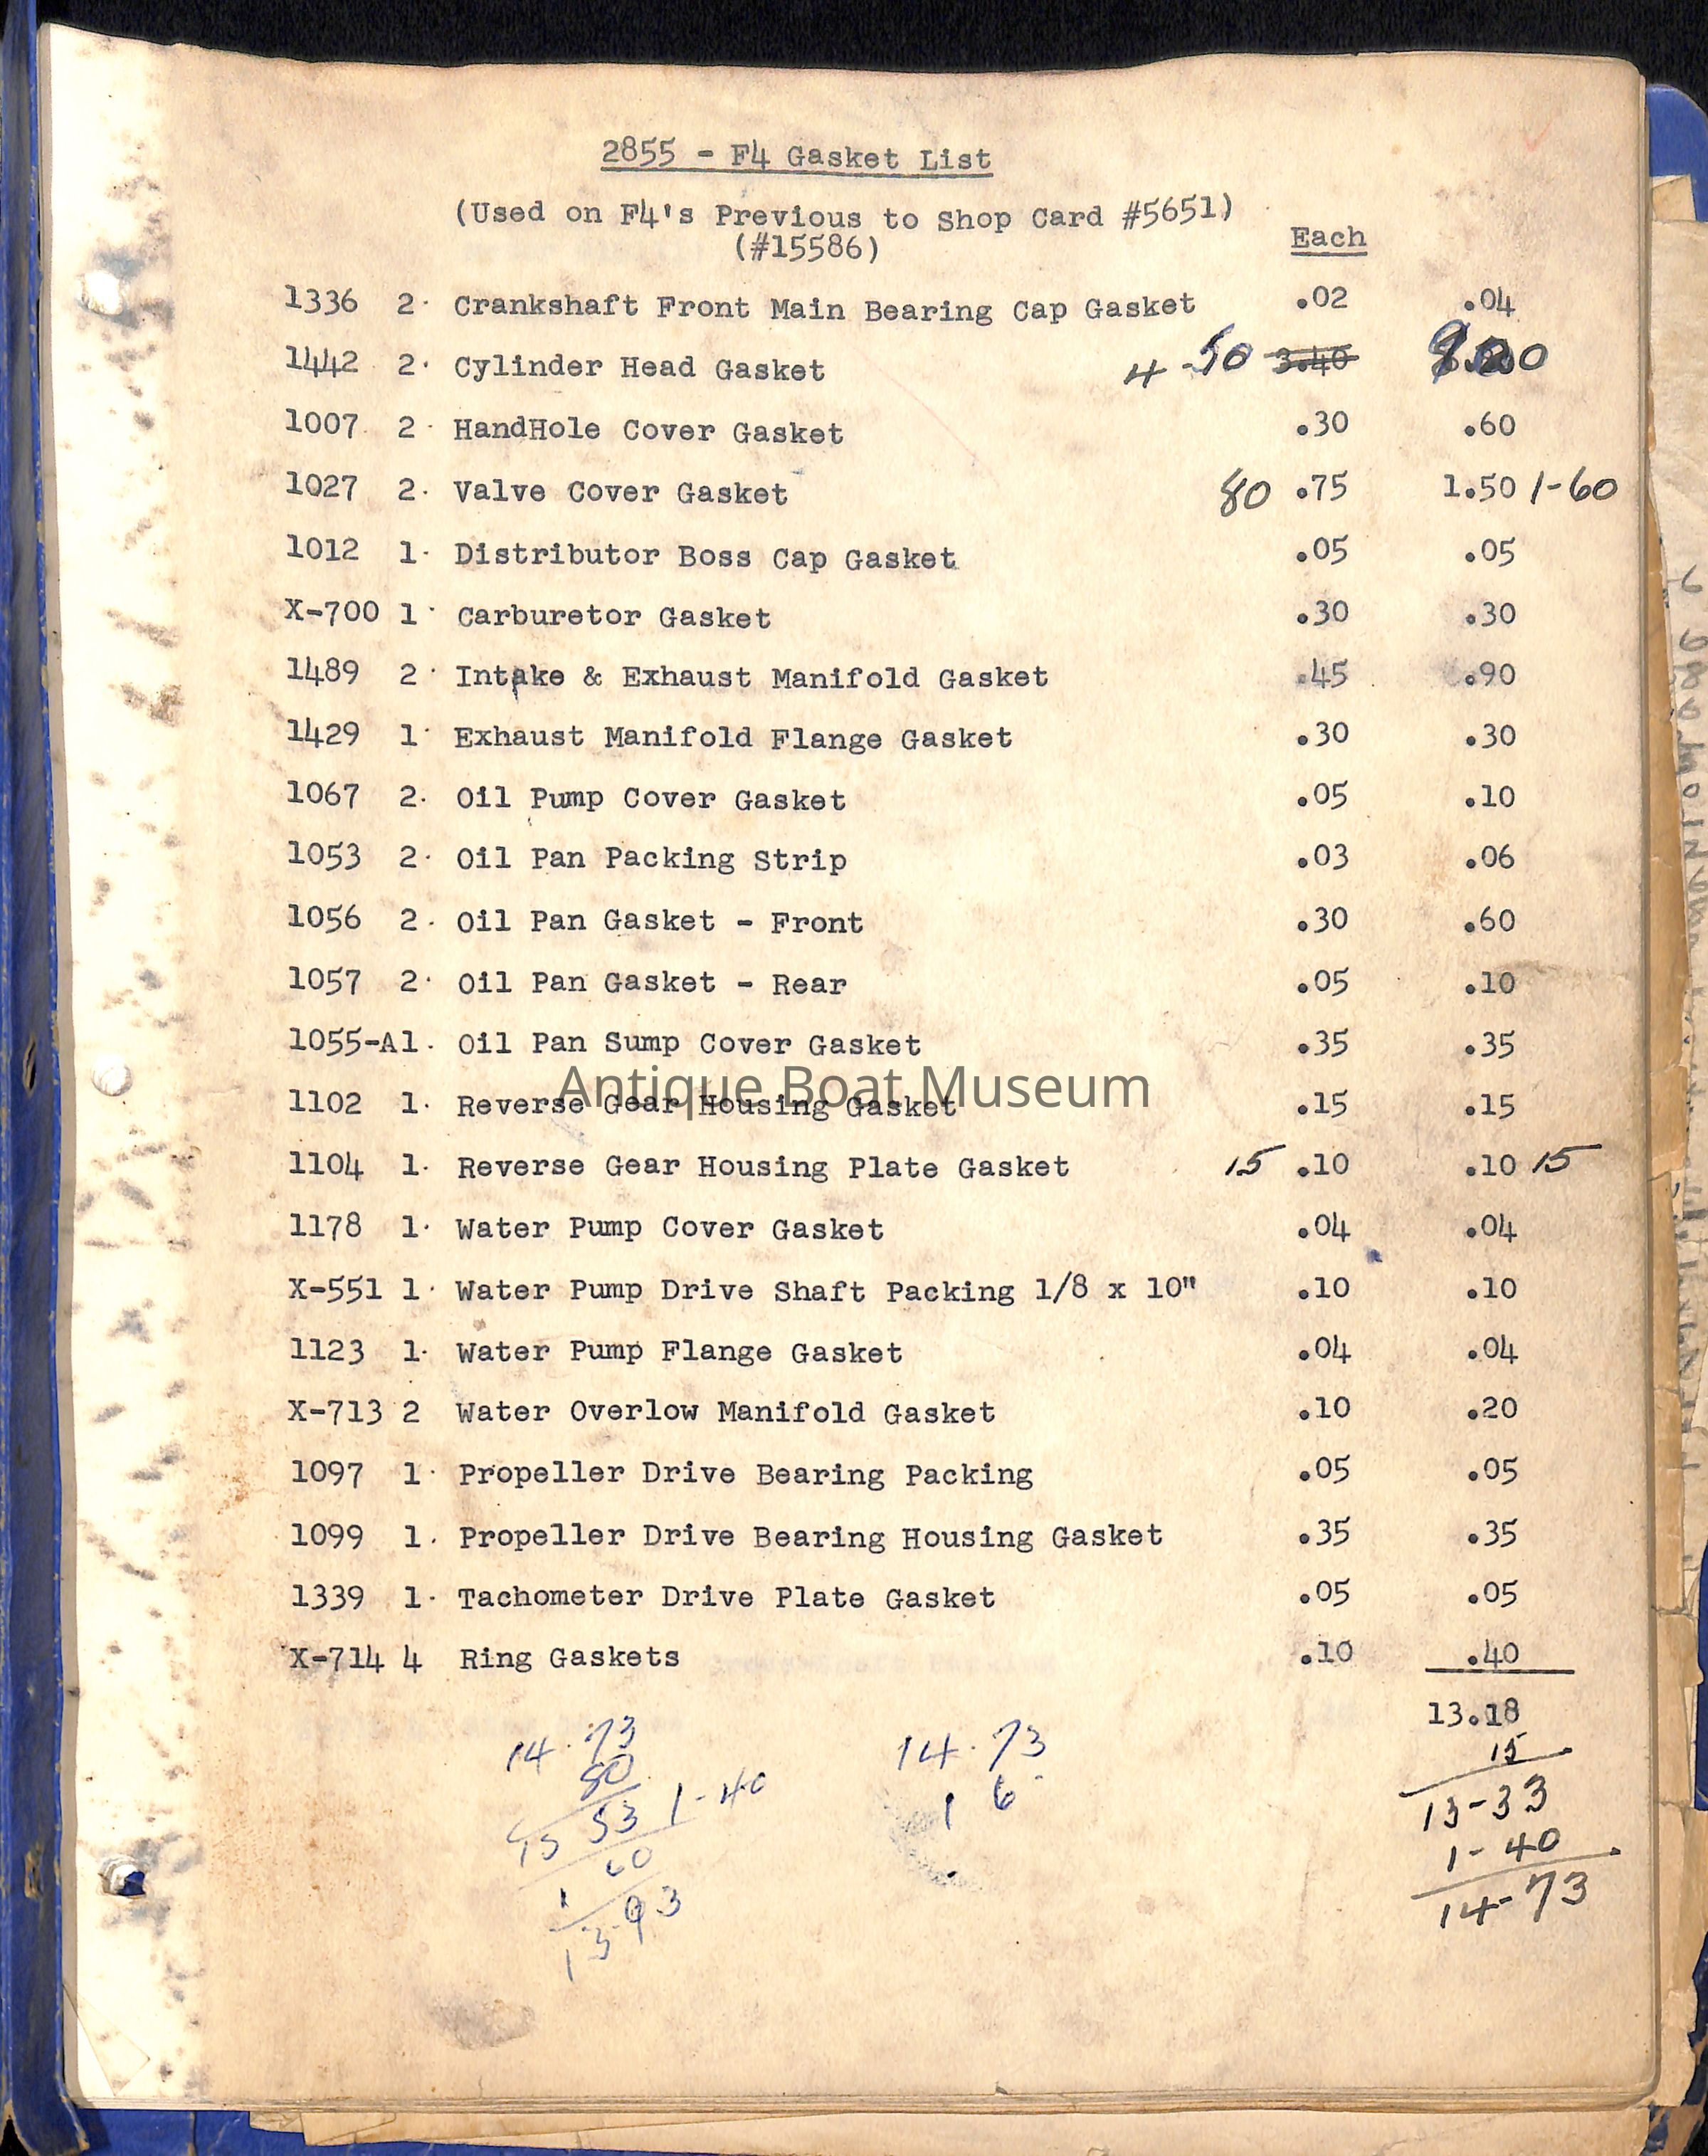 2855 - F4 Gasket List
(Used on F4's Previous to Shop Card #5651)
(#15586)
Each
1336 2 Crankshaft Front Main Bearing Cap Gasket .02 .04
1442 2 Cylinder Head Gasket 4-50 3.40 9.00
1007 2 HandHole Cover Gasket .30 .60
1027 2 Valve Cover Gasket 80 .75 1.50 1-60
1012 1 Distributor Boss Cap Gasket .05 .05
X-700 1 Carburetor Gasket .30 .30
1489 2 Intake & Exhaust Manifold Gasket .45 .90
1429 1 Exhaust Manifold Flange Gasket .30 .30
1067 2 Oil Pump Cover Gasket .05 .10
1053 2 Oil Pan Packing Strip .03 .06
1056 2 Oil Pan Gasket - Front .30 .60
1057 2 Oil Pan Gasket - Rear .05 .10
1055-A1 Oil Pan Sump Cover Gasket .35 .35
Antique Boat Museum
1102 1 Reverse Gear Housing Gasket .15 .15
1104 1 Reverse Gear Housing Plate Gasket 15 .10 .10 15
1178 1 Water Pump Cover Gasket .04 .04
X-551 1 Water Pump Drive Shaft Packing 1/8 x 10" .10 .10
1123 1 Water Pump Flange Gasket .04 .04
X-713 2 Water Overlow Manifold Gasket .10 .20
1097 1 Propeller Drive Bearing Packing .05 .05
1099 1 Propeller Drive Bearing Housing Gasket .35 .35
1339 1 Tachometer Drive Plate Gasket .05 .05
X-714 4 Ring Gaskets .10 .40
13.18
15
13-33
1-40
14-73
14.73
80
15 53 1-40
60
1
13.93
14.73
1 6